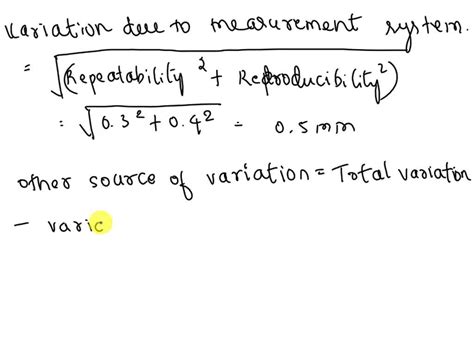 Variation due to measurement system.
= √(Repeatability² + Reproducibility²)
= √0.3² + 0.4² = 0.5mm
other source of variation = Total variation
- varic